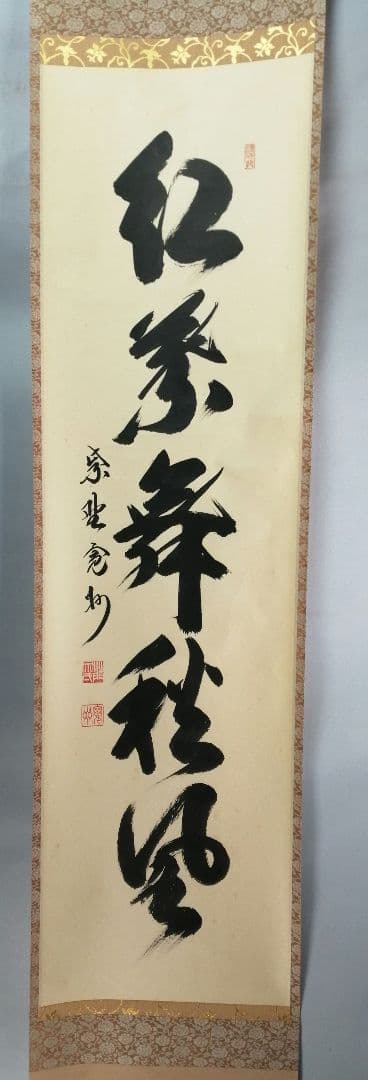 紅葉舞秋風
紫野寛州